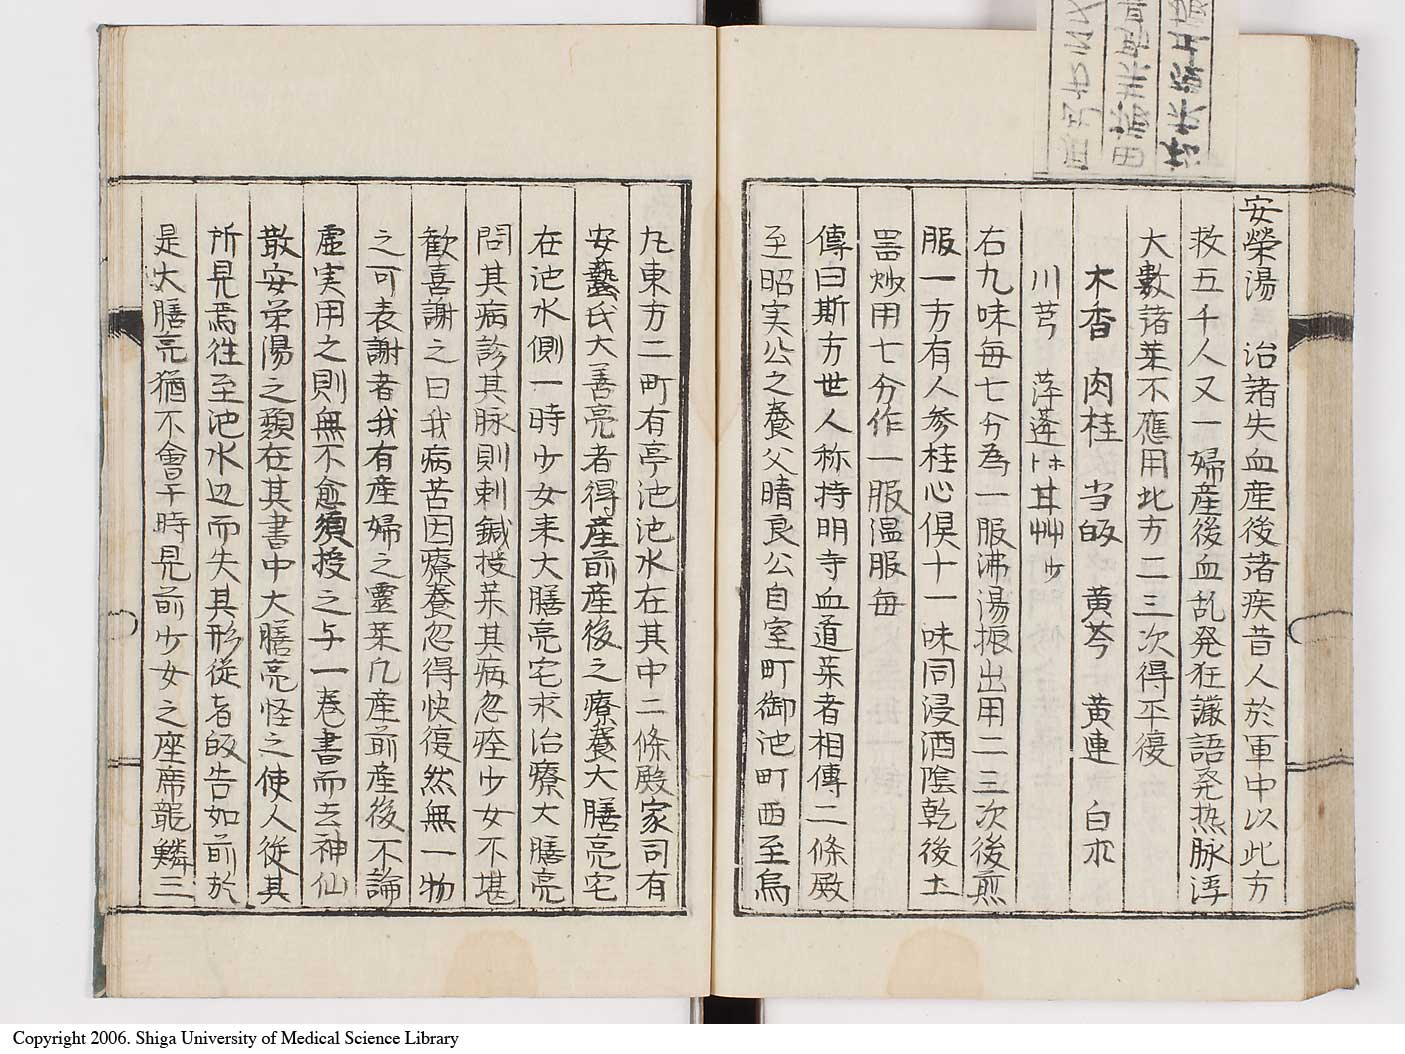 安榮湯 治諸失血産後諸疾昔人於軍中以此方
救五千人又一婦産後血乱発狂讝語発热脉浮
大數諸藥不應用此方二三次得平復
木香 肉桂 当皈 黄芩 黄連 白朮
川芎 萍蓬 甘艸少
右九味毎七分為一服沸湯振出用二三次後煎
服一方有人参桂心倶十一味同浸酒陰乾後土
噐炒用七分作一服温服毎
傳曰斯方世人称持明寺血道薬者相傳二條殿
至昭実公之養父晴良公自室町御池町西至烏
丸東方二町有亭池池水在其中二條殿家司有
安藝氏大善亮者得産前産後之療養大膳亮宅
在池水側一時少女来大膳亮宅求治療大膳亮
問其病診其脉則刺鍼授薬其病忽痊少女不堪
歓喜謝之曰我病苦因療養忽得快復然無一物
之可表謝者我有産婦之靈薬凢産前産後不論
虚実用之則無不愈須授之与一巻書而去神仙
散安栄湯之類在其書中大膳亮怪之使人従其
所見焉徃至池水辺而失其形従者皈告如前於
是大膳亮猶不會于時晃前少女之座席龍鱗三
Copyright 2006. Shiga University of Medical Science Library